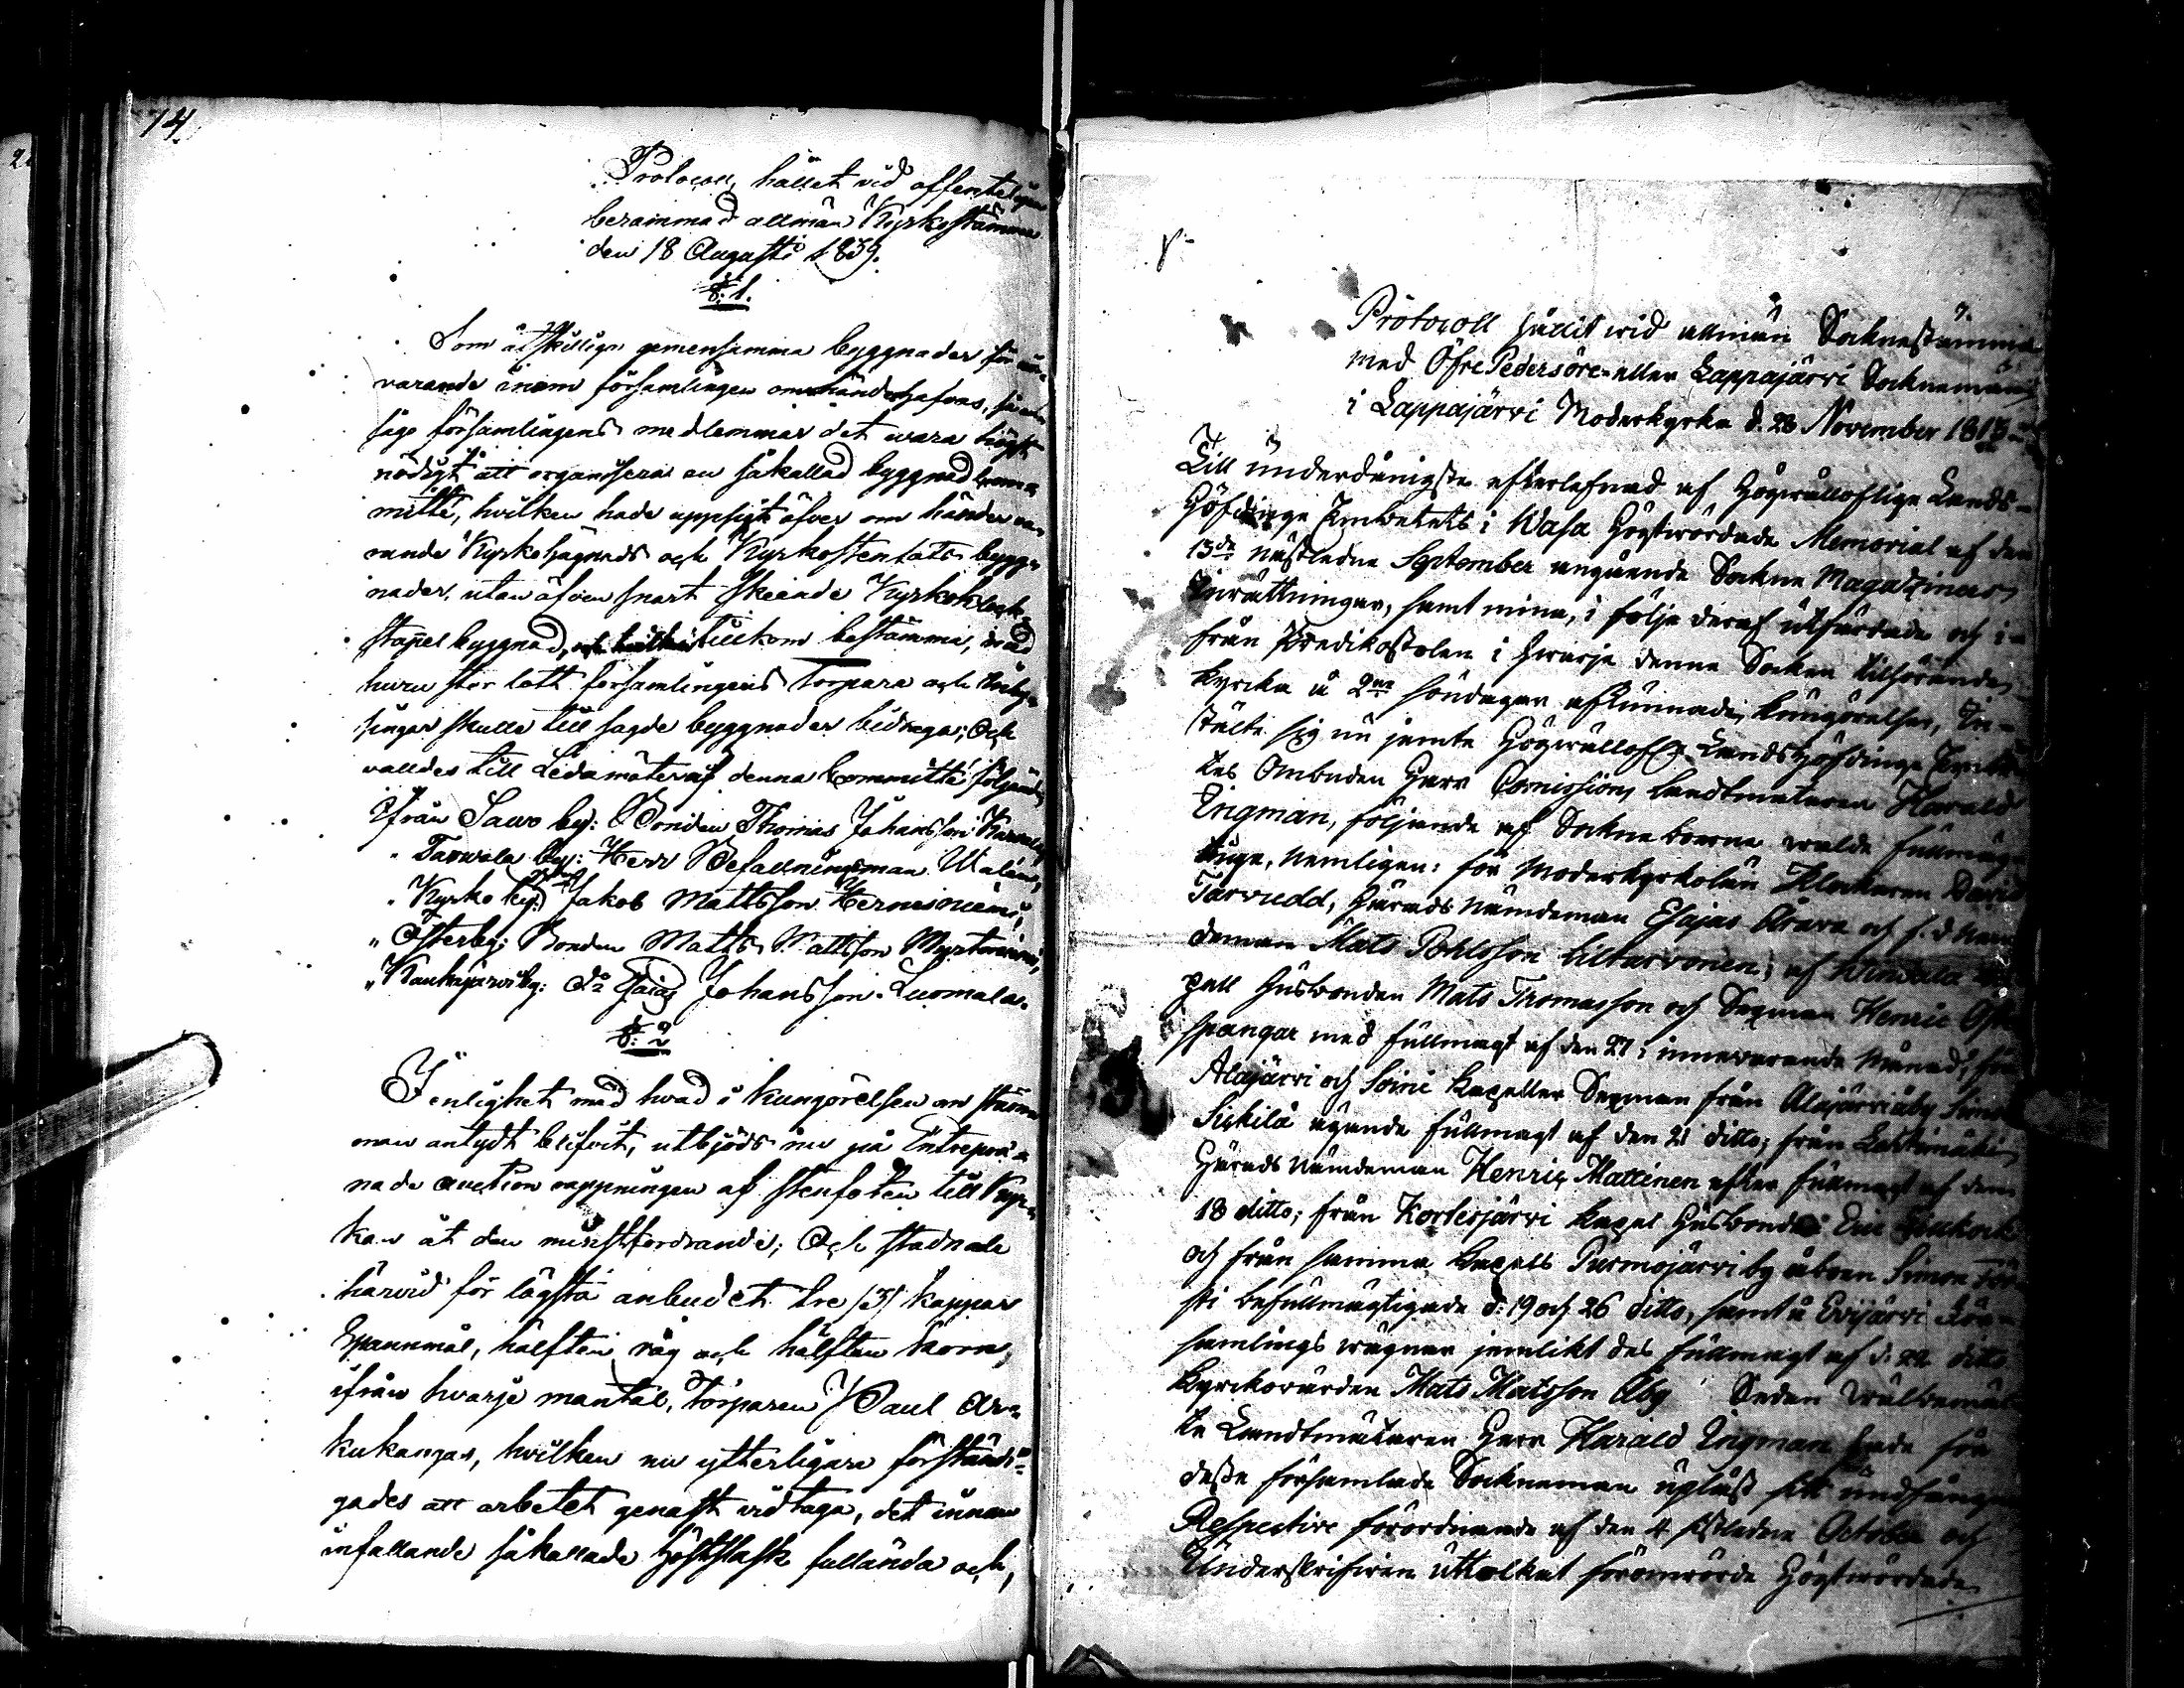 74.
Protocoll, hållet vid offenteligen
berammad allmän Kyrkostämma
den 18 Augusti 1839.
§. 1.
Som åtskilliga gemensamma byggnader för när-
varande inom församlingen omhänderhafvas, så
sågo församlingens medlemmar det wara högst
nödigt att organisera en såkallad byggnad komm
mitté, hvilken hade uppsigt öfver om händer va-
rande Kyrkohägnads och Kyrkostentäts bygg-
nader, utan äfven snart skeende Kyrkoklock
stapelbyggnad, tillkom bestämma, med
huru stor lott församlingens Torpare och Inhy-
singar skulle till sagde byggnader bidraga; Och
valldes till Ledamöter af denna Committé följande
Ifrån Sawo by: Bonden Thomas Johansson
" Tarwola by: Herr Befallningsman Walén,
" Kyrkoby: Jakob Mattsson Hernesniemi,
" Österby: Bonden Matts Mattsson Myrtoniemi,
" Kauhajärviby: Då Esaias Johansson Luomala.
§. 2
I enlighet med hvad i kungörelsen om stämm
man antydt blifvit, utbjöds nu på Entrepre-
nade auction rappningen af stenfoten till Kyr-
kan åt den minstfordrande; Och stadnade
härvid för lägsta anbudet tre /3/ kappar
Spannmål, hälften råg och hälften korn,
ifrån hvarje mantal, Torparen Paul Ar-
kukangas, hvilken nu ytterligare förständi-
gades att arbetet genast vidtaga, det innan
infallande såkallade höstslask fullända och,
Protocoll hållit wid allmän Socknestämma
med Öfre Pedersöre eller Lappajärvi Socknemän
i Lappajärvi Moderkyrka d. 28 November 1813
Till underdånigste efterlefnad af Högwällofliga Lands-
Höfdinge Embetets i Wasa Högtwördade Memorial af den
13de nästledne September angående Sockne Magaziners
Inrättningar, samt mina, i följe deraf utfärdade och i-
från Predikostolen i hwarje denna Socken tillhörande
kyrka å 2ne söndagar aflysnade, kungörelser, In-
stälte sig nu jemte Högwällofl. Landshöfdinge Embe-
tes Ombuden Herr Comissions Landtmätaren Harald
Ingman, följande af Sockneboerne walde fullmäg-
tige, nemligen: för Moderkyrkolän Klockaren David
Tarvudd, Härads Nämndeman Esajas Orava och f. d. Näm
deman Mats Pohlsson Liltarvonen; af
pell Husbonden Mats Thomasson och Sexman Henric
spangar med fullmagt af den 27 i innewarande Månad; för
Alajärvi och Soini Kapeller Sexman från Alajärvi by Simon
Sipilä ägande fullmagt af den 21 ditto; från
Härads Nämdeman Henric Mattinen efter fullmagt af den
18 ditto; från Kortesjärvi kapel Husbonden Eric
och från samma kapells Purmojärvi by åboen Simon
befullmägtigade d: 19 och 26 ditto, samt å Evijärvi För-
samlings wägnar jemlikt des fullmagt af d. 22 ditto
Kyrkovärden Mats Matsson Åby. Sedan wälbemäl-
te Landtmätaren Herr Harald Ingman hade för
desse församlade Sockneman upläst sitt undfångne
Respective förordnande af den 4 sistledne October och
Underskrifven uttolkat förömrörde Högtwördade